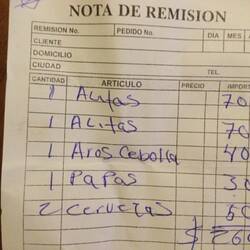 NOTA DE REMISION
REMISION No. PEDIDO No. DIA MES
CLIENTE
DOMICILIO
CIUDAD TEL.
CANTIDAD ARTICULO PRECIO IMPOR
1 ALitas 70
1 ALitas 70
1 Aros Cebolla 40
1 PaPas 30
2 Cervezas 50
$ 260